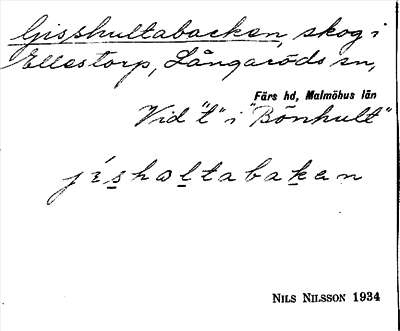 Gisshultabacken, skog i
Ellestorp, Långaröds sn,
Färs hd, Malmöhus län
Vid "t" i "Bönhult"
jishaltabakan
NILS NILSSON 1934